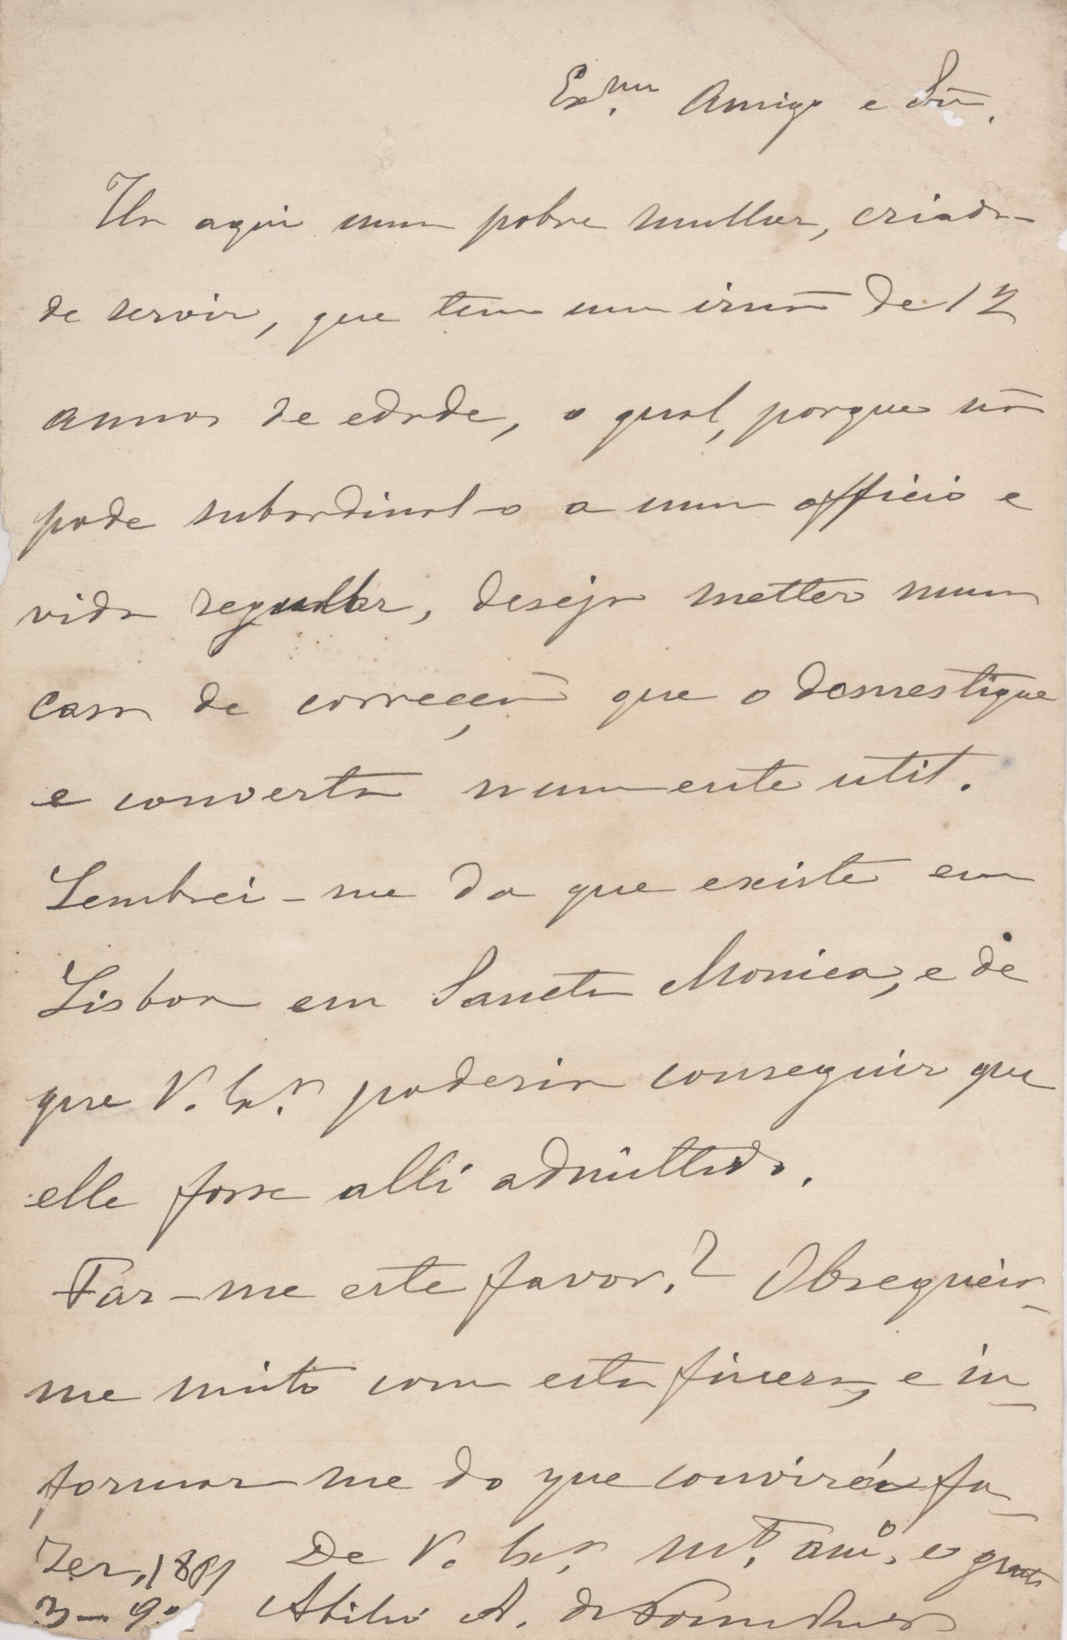 Ex.mo Amigo e Sr.
Ha aqui uma pobre mulher, criada
de servir, que tem um irmão de 12
annos de edade, o qual, porque não
pode subordinal-o a um officio e
vida regular, deseja metter numa
casa de correcção que o domestique
e converta num ente util.
Lembrei-me da que existe em
Lisboa em Sancta Monica, e de
que V. Ex.a poderia conseguir que
elle fosse alli admittido.
Far-me este favor? Obsequeia-
me muito com esta fineza, e in-
formar-me do que convirá fa-
zer. 1881 De V. Ex.a m.to am.o e grato
3-9 Abilio A. da